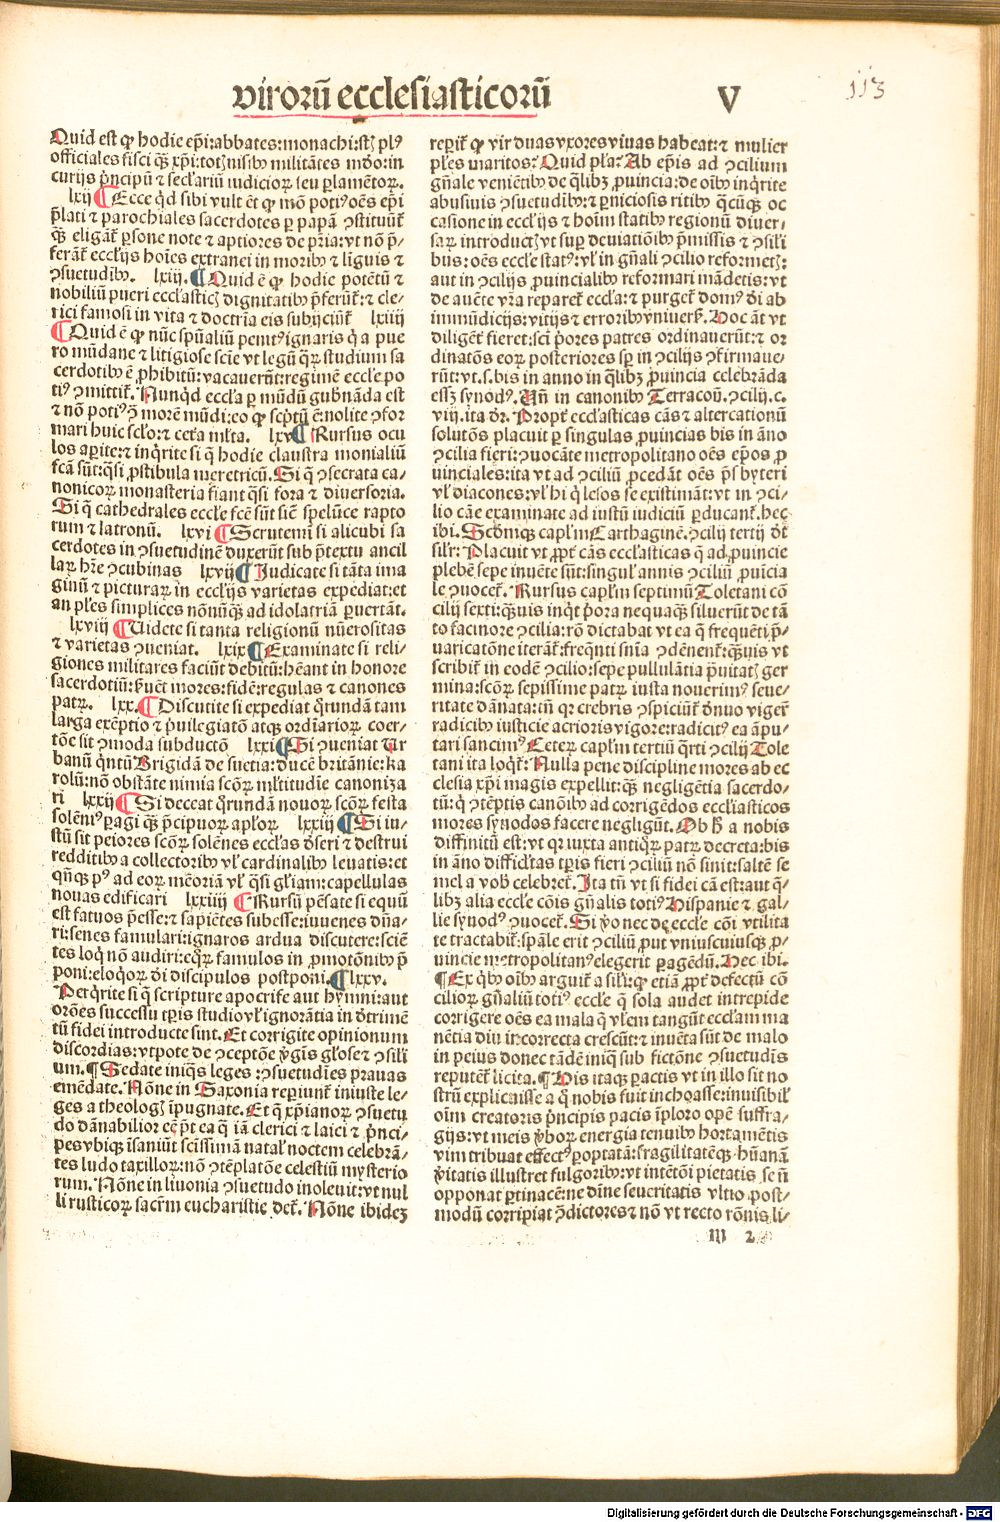 virorū ecclesiasticorū V
113
Quid est qꝫ hodie ep̄i:abbates:monachi:stꝫ plꝰ
officiales fisci qꝫ̄ xp̄i:totꝫ nisibꝰ militātes mōo:in
curijs p̄ncipū ⁊ seclariū iudicioꝝ seu plamētoꝝ.
lxij ¶Ecce qͥd sibi vult ēt qꝫ mō potiꝰ oēs ep̄i
p̄lati ⁊ parochiales sacerdotes ꝑ papā ꝯstituūt᷑
qꝫ̄ eligāt᷑ ꝑsone note ⁊ aptiores de pr̄ia:vt nō p̄-
ferāt᷑ eccl̄ijs hoīes extranei in moribꝰ ⁊ liguis ⁊
ꝯsuetudībꝰ. lxiij. ¶Quid ē qꝫ hodie potētū ⁊
nobiliū pueri eccl̄asticꝫ dignitatibꝰ p̄ferūt᷑:⁊ cle-
rici famosi in vita ⁊ doctrīa eis subijciūt᷑ lxiiij
¶Quid ē qꝫ nūc sp̄ualiū penitꝰ ignaris qͥ a pue
ro mūdane ⁊ litigiose scīe vt legū qͦꝝ studium sa
cerdotibꝰ ē ꝓhibitū:vacauerūt:regimē eccl̄e po
tiꝰ ꝯmittit᷑. Nunqͥd eccl̄a ꝑ mūdū gubnāda est
⁊ nō potiꝰ ꝯͣ morē mūdi:eo qꝫ sc̄ptū ē:nolite ꝯfor
mari huic sc̄lo:⁊ cet̄a ml̄ta. lxv ¶Rursus ocu
los aꝑite:⁊ inq̄rite si q̄ hodie claustra monialiū
fc̄ā sūt:qͣsi ꝓstibula meretricū. Si q̄ ꝯsecrata ca-
nonicoꝝ monasteria fiant qͣsi fora ⁊ diuersoria.
Si q̄ cathedrales eccl̄e fcē sūt siē spelūce rapto
rum ⁊ latronū. lxvi ¶Scrutemī si alicubi sa
cerdotes in ꝯsuetudinē duxerūt sub p̄textu ancil
laꝝ hr̄e ꝯcubinas lxvij ¶Iudicate si tāta ima
ginū ⁊ picturaꝝ in eccl̄ijs varietas expediat:et
an pl̄es simplices nōnūqꝫ̄ ad idolatriā ꝑuertāt.
lxviij ¶Uidete si tanta religionū nūerositas
⁊ varietas ꝯueniat. lxix ¶Examinate si reli-
giones militares faciūt debitū:hēant in honore
sacerdotiū:ẜuēt mores:fidē:regulas ⁊ canones
patꝝ. lxx. ¶Discutite si expediat qͦrundā tam
larga exēptio ⁊ p̄uilegiatō atqꝫ ordīarioꝝ coer-
tōe sit ꝯmoda subductō lxxi ¶Si ꝯueniat Ur
banū qͥntū Brigidā de suetia:ducē britānie:ka
rolū:nō obstāte nimia sc̄oꝝ ml̄titudīe canoniza
ri lxxij ¶Si deceat qͦrundā nouoꝝ sc̄oꝝ festa
solēniꝰ ꝑagi qꝫ̄ p̄cipuoꝝ apl̄oꝝ lxxiij ¶Si iu-
stū sit peiores sc̄oꝝ solēnes eccl̄as d̄seri ⁊ destrui
redditibꝰ a collectoribꝰ vl̓ cardinalibꝰ leuatis:et
qn̄qꝫ pꝰ ad eoꝝ mēoriā vl̓ qͣsi gl̄iam:capellulas
nouas edificari lxxiiij ¶Rursū pēsate si equū
est fatuos p̄esse:⁊ sapiētes subesse:iuuenes dn̄a-
ri:senes famulari:ignaros ardua discutere:sciē
tes loqͥ nō audiri:eqͦꝝ famulos in ꝓmotōnibꝰ p̄
poni:eloqͦꝝ dī discipulos postpoīn. ¶lxxv.
Perqͥrite si q̄ scripture apocrife aut hymni:aut
orōnes successu tꝑis studio vl̓ ignorātia in d̄trimē
tū fidei introducte sint. Et corrigite opinionum
discordias:vtpote de ꝯceptōe v̓gīs gl̓ose ⁊ sil̓i
um. ¶Sedate iniqͣs leges:ꝯsuetudīes prauas
emēdate. Nōne in Saxonia reꝑiunt᷑ iniuste le-
ges a theologꝫ īpugnate. Et q̄ xp̄ianoꝝ ꝯsuetu
do dānabilior eē p̄t ea q̄ iā clerici ⁊ laici ⁊ p̄nci-
pes vbiqꝫ īsaniūt sc̄issimā natal̓ noctem celebrā-
tes ludo taxilloꝝ:nō ꝯtēplatōe celestiū mysterio
rum. Nōne in liuonia ꝯsuetudo inoleuit:vt nul
li rusticoꝝ sacr̄m eucharistie det᷑. Nōne ibidez
reꝑit᷑ qꝫ vir duas vxores viuas habeat:⁊ mulier
pl̄es maritos? Quid pl̄a? Ab ep̄is ad ꝯcilium
gn̄ale veniētibꝰ de qͣlibꝫ ꝓuincia:de oībꝰ inqͥrite
abusiuis ꝯsuetudībꝰ:⁊ ꝑniciosis ritibꝰ qͥcūqꝫ oc
casione in eccl̄ijs ⁊ hoīm statibꝰ regionū diuer-
saꝝ introductꝫ vt suꝑ deuiatiōibꝰ p̄missis ⁊ ꝯsil̓i
bus:oēs eccl̄e statꝰ:vl̓ in gn̄ali ꝯcilio reformetꝫ:
aut in ꝯcilijs ꝓuincialibꝰ reformari mādetis:vt
de aduētē vr̄a reparet᷑ eccl̄a:⁊ purget᷑ domꝰ dī ab
immūdicijs:vitijs ⁊ erroribꝰ vniuerß. Hoc āt vt
diligēt᷑ fieret:sci p̄ores patres ordinauerūt:⁊ or
dinatōnes eoꝝ posteriores sꝑ in ꝯcilijs ꝯfirmaue-
rūt:vt.s.bis in anno in qͣlibꝫ ꝓuincia celebrāda
essꝫ synodꝰ. Un̄ in canonibꝰ Terracoū. ꝯcilij.c.
viij.ita dr̄. Propt᷑ eccl̄asticas cās ⁊ altercationū
solutōes placuit ꝑ singulas ꝓuincias bis in āno
ꝯcilia fieri:ꝯuocāte metropolitano oēs ep̄os ꝓ
uinciales:ita vt ad ꝯciliū ꝓcedāt oēs p̄sbyteri
vl̓ diacones:vl̓ hi qͥ lesos se existimāt:vt in ꝯci-
lio cāe examinate ad iustū iudiciū ꝑducant᷑.hec
ibi. Scd̄mqꝫ capl̄m Carthaginē.ꝯcilij tertij dt̄
sil̓r: Placuit vt ꝓpt᷑ cās eccl̄asticas q̄ ad ꝓuincie
plebē sepe inuēte sūt:singul̓ annis ꝯciliū ꝓuīcia
le ꝯuocet᷑. Rursus capl̄m septimū Toletani cō
cilij sexti:qͣꝫuis inqͥt p̄ora nequaqꝫ̄ siluerūt de tā
to facinore ꝯcilia:rō dictabat vt ea q̄ frequēti p̄-
uaricatōne iterāt᷑:freqͣnti sn̄ia ꝯdēnent᷑:qꝫ̄uis vt
scribit᷑ in eodē ꝯcilio:sepe pullulātia p̄uitatꝫ ger
mina:sc̄oꝝ sepissime patꝝ iusta nouerimꝰ seue-
ritate dānata:tn̄ qꝛ crebris ꝯspiciūt᷑ d̄nuo viger̄
radicibꝰ iusticie acrioris vigore:radicitꝰ ea āpu-
tari sancimꝰ. Ceteꝝ capl̄m tertiū qͣrti ꝯcilij Tole
tani ita loqͥt᷑: Nulla pene discipline mores ab ec
clesia xp̄i magis expellit:qꝫ̄ negligētia sacerdo-
tū:qͥ ꝯtēptis canōibꝰ ad corrigēdos eccl̄iasticos
mores synodos facere negligūt. Ob ħ a nobis
diffinitū est:vt qꝛ iuxta antiqͦꝝ patꝝ decreta:bis
in āno difficl̄tas tꝑis fieri ꝯciliū nō sinit:saltē se
mel a vob̄ celebret᷑. Ita tn̄ vt si fidei cā est:aut q̄-
libꝫ alia eccl̄e cōis gn̄alis totiꝰ Hispanie ⁊ gal-
lie synodꝰ ꝯuocet᷑. Si v̓o nec de eccl̄e cōi vtilita
te tractabit᷑:spāle erit ꝯciliū ꝓut vniuscuiusqꝫ ꝓ-
uincie metropolitanꝰ elegerit ꝑagēdū. Hec ibi.
¶Ex qͥbꝰ oībꝰ arguit᷑ a sil̓i:qꝫ etiā ꝓpt᷑ defectū cō
cilioꝝ gn̄aliū totiꝰ eccl̄e q̄ sola audet intrepide
corrigere oēs ea mala q̄ vl̓em tangūt eccl̄am ma
nētia diu incorrecta crescūt:⁊ inuēta sūt de malo
in peius donec tādē iniqͣ sub fictōne ꝯsuetudīs
reputēt᷑ licita. ¶His itaqꝫ ꝑactis vt in illo sit no
strū explicuisse a qͦ nobis fuit inchoasse:inuisibil̓
oīm creatoris p̄ncipis pacis īploro opē suffra-
gijs:vt meis v̓boꝝ energia tenuibꝰ hortamētis
vim tribuat effectꝰ ꝑoptatā:fragilitatēqꝫ hūanā
v̓itatis illustret fulgoribꝰ:vt intētōi pietatis se n̄
opponat ꝑtinacē:ne dīne seueritatis vltio post-
modū corripiat ꝯdictores ⁊ nō vt recto rōnis li-
lll 2
Digitalisierung gefördert durch die Deutsche Forschungsgemeinschaft - DFG